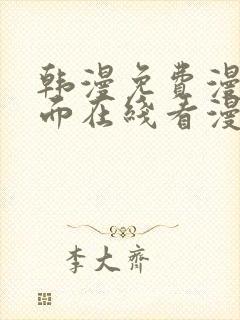 韩漫免费漫
而在线看漫
李大齐